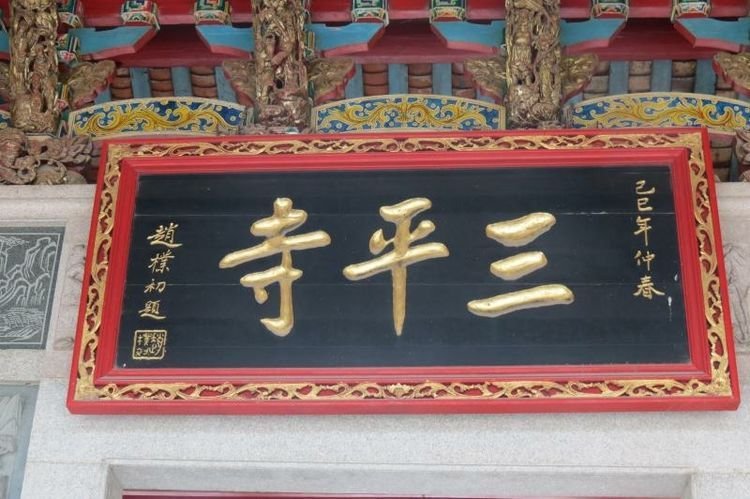 己巳年仲春
三平寺
趙樸初題